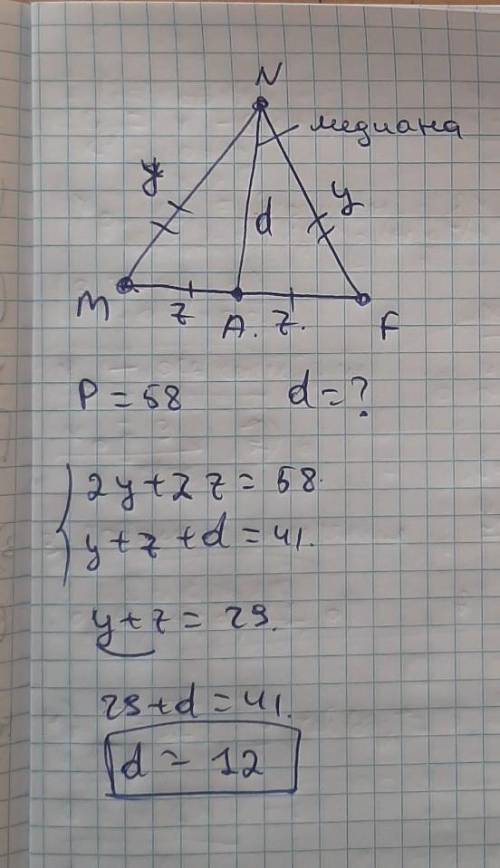 N
медиана
y y
d
M z A. z. F
P = 58 d = ?
2y + 2z = 58.
y + z + d = 41.
y + z = 29.
29 + d = 41.
d = 12